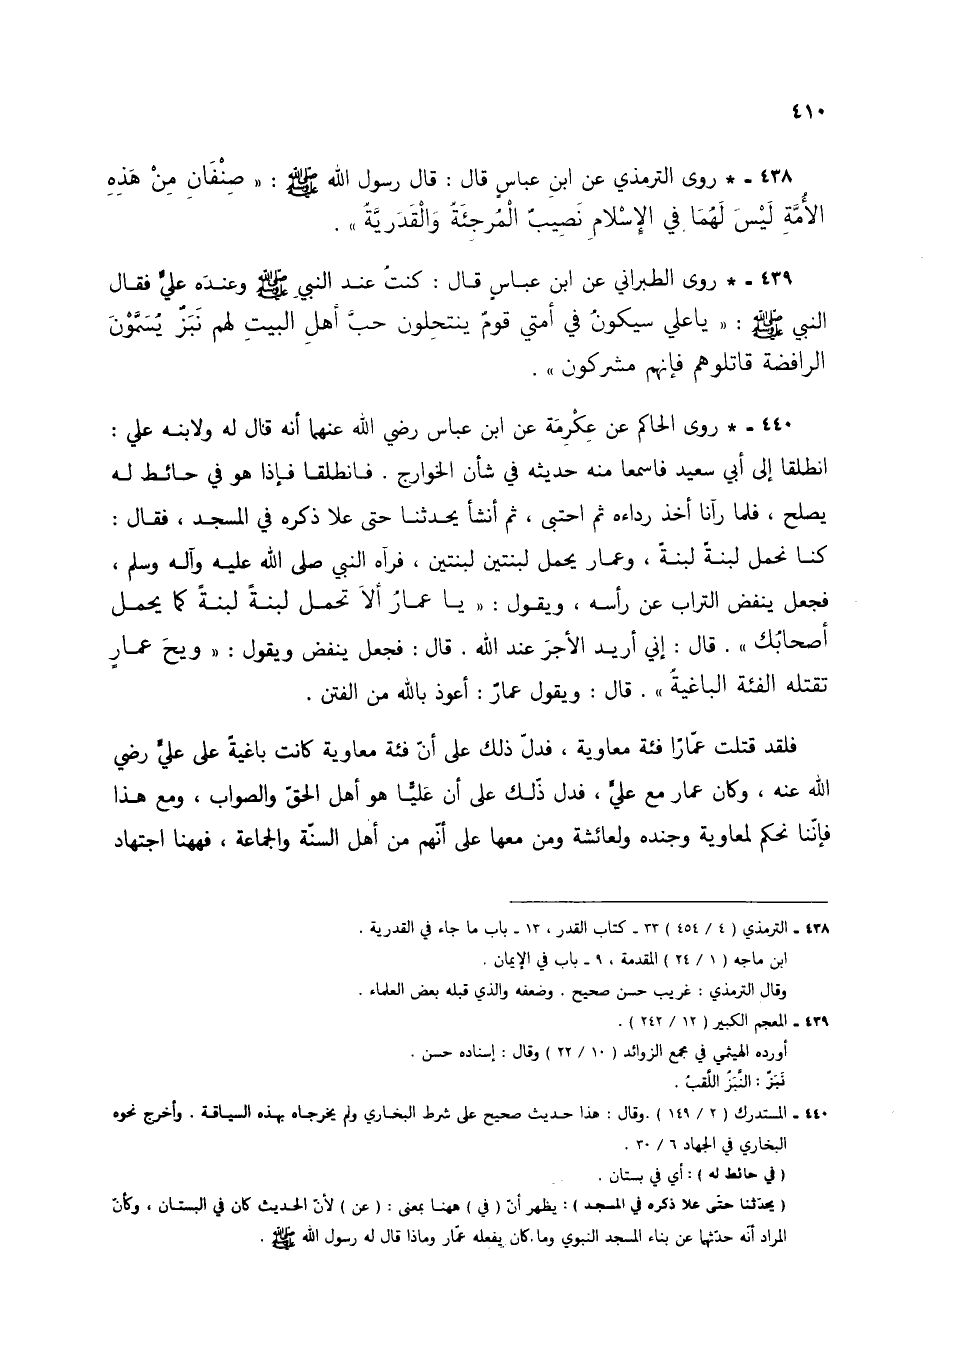 ٤١٠
٤٣٨ ـ * روى الترمذي عن ابنِ عباسٍ قال : قال رسول الله ﷺ : « صِنْفَانِ مِنْ هَذِهِ
الأُمَّةِ لَيْسَ لَهُمَا فِي الإِسْلامِ نَصِيبٌ الْمُرجِئَةُ وَالْقَدَرِيَّةُ » .
٤٣٩ ـ * روى الطبراني عن ابن عبـاسٍ قـال : كنتُ عنـد النبيِ ﷺ وعنـدَه عليٌّ فقـال
النبي ﷺ : « ياعلي سيكونُ في أمتي قومٌ ينتحلون حبَّ أهلِ البيتِ لهم نَبَزٌ يُسَمَّوْنَ
الرافضة قاتلوهم فإنهم مشركون » .
٤٤٠ ـ * روى الحاكم عن عِكْرِمَة عن ابن عباس رضي الله عنهما أنه قال له ولابنـه علي :
انطلقا إلى أبي سعيد فاسمعا منه حديثه في شأن الخوارج . فـانطلقـا فـإذا هو في حـائـط لـه
يصلح ، فلما رآنا أخذ رداءه ثم احتبى ، ثم أنشأ يحـدثنـا حتى علا ذكره في المسجـد ، فقـال :
كنـا نحمل لبنـةً لبنـةً ، وعمـار يحمل لبنتين لبنتين ، فرآه النبي صلى الله عليـه وآلـه وسلم ،
فجعل ينفض التراب عن رأسـه ، ويقـول : « يـا عمـارُ ألاَ تحمـل لبنـةً لبنـةً كما يحمـل
أصحابُك » . قال : إني أريـد الأجرَ عند الله . قال : فجعل ينفض ويقول : « ويحَ عمـارٍ
تقتله الفئة البـاغيةُ » . قال : ويقول عمارٌ : أعوذ بالله من الفتن .
فلقد قتلت عمّارًا فئة معاوية ، فدلّ ذلك على أنّ فئة معاوية كانت باغيةً على عليٌّ رضي
الله عنه ، وكان عمار مع عليٌّ ، فدل ذّلـك على أن عَليًّـا هو أهل الحقّ والصواب ، ومع هـذا
فإنّنا نحكم لمعاوية وجنده ولعائشة ومن معها على أنّهم من أهل السنّة والجماعة ، فههنا اجتهاد
٤٣٨ ـ الترمذي ( ٤ / ٤٥٤ ) ٣٣ ـ كتاب القدر ، ١٣ ـ باب ما جاء في القدرية .
ابن ماجه ( ١ / ٢٤ ) المقدمة ، ٩ ـ باب في الإيمان .
وقال الترمذي : غريب حسن صحيح . وضعفه والذي قبله بعض العلماء .
٤٣٩ ـ المعجم الكبير ( ١٢ / ٢٤٢ ) .
أورده الهيثمي في مجمع الزوائد ( ١٠ / ٢٢ ) وقال : إسناده حسن .
نَبَزٌ : النَّبَزُ اللّقبُ .
٤٤٠ ـ المستدرك ( ٢ / ١٤٩ ) .وقال : هذا حـديث صحيح على شرط البخاري ولم يخرجـاه بهـذه السيـاقـة . وأخرج نحوه
البخاري في الجهاد ٦ / ٣٠ .
( في حائط له ) : أي في بستان .
( يحدّثنا حتّى علا ذكره في المسجـد ) : يظهر أنّ ( في ) ههنـا بمعنى : ( عن ) لأنّ الحديث كان في البستان ، وكأنّ
المراد أنّه حدّثها عن بناء المسجد النبوي وما كان يفعله عمّار وماذا قال له رسول الله ﷺ .